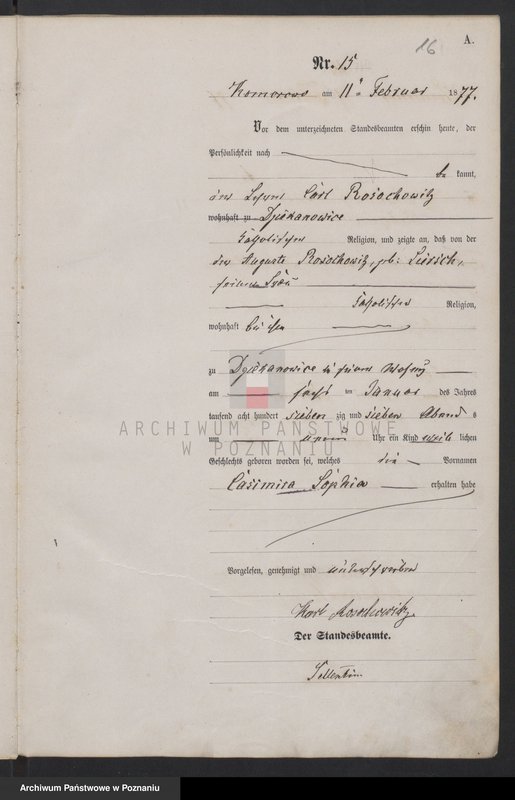 16
A.
Nr. 15
Komorowo am 11" Februar 1877.
Vor dem unterzeichneten Standesbeamten erschin heute, der
Persönlichkeit nach
be kannt,
der Carl Rosochowitz
wohnhaft zu Dziekanowice
katholischer Religion, und zeigte an, daß von der
Auguste Rosochowitz, geb:
katholischer Religion,
wohnhaft bei ihm
zu Dziekanowice in seiner
am im Januar des Jahres
tausend acht hundert sieben zig und sieben Abend s
um neun Uhr ein Kind weib lichen
Geschlechts geboren worden sei, welches die Vornamen
Casimira Sophia erhalten habe
Vorgelesen, genehmigt und unterschrieben
Karl Rosochowitz.
Der Standesbeamte.
ARCHIWUM PAŃSTWOWE
W POZNANIU
Archiwum Państwowe w Poznaniu